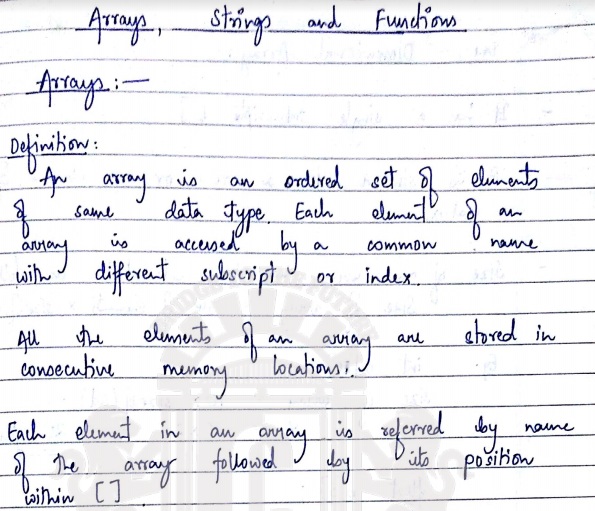 Arrays, Strings and Functions
Arrays :—
Definition:
An array is an ordered set of elements
of same data type. Each element of an
array is accessed by a common name
with different subscript or index.
All the elements of an array are stored in
consecutive memory locations.
Each element in an array is referred by name
of the array followed by its position
within [ ]